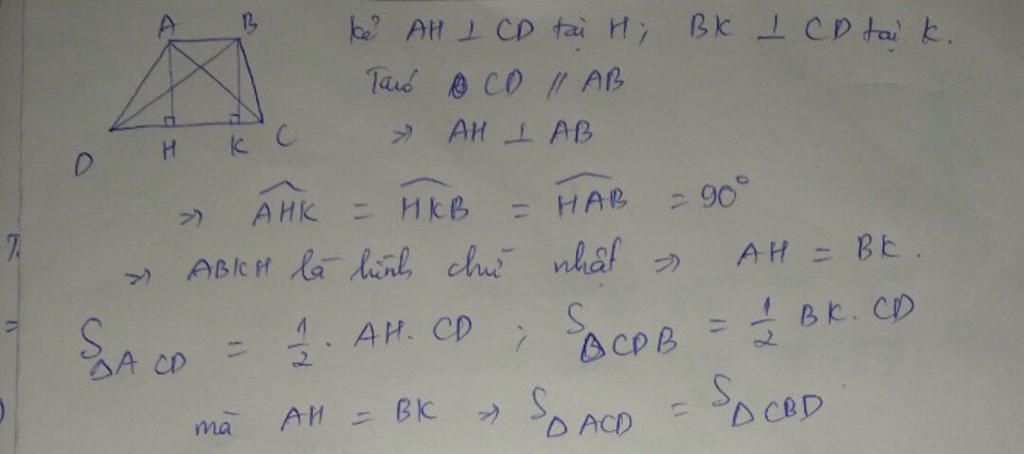 A B
kẻ AH ⊥ CD tại H; BK ⊥ CD tại K.
Ta có CD // AB
=> AH ⊥ AB
D H K C
=> AHK = HKB = HAB = 90°
=> ABKH là hình chữ nhật => AH = BK.
S ΔACD = 1/2 . AH. CD ; S ΔCDB = 1/2 BK. CD
mà AH = BK => S ΔACD = S ΔCBD